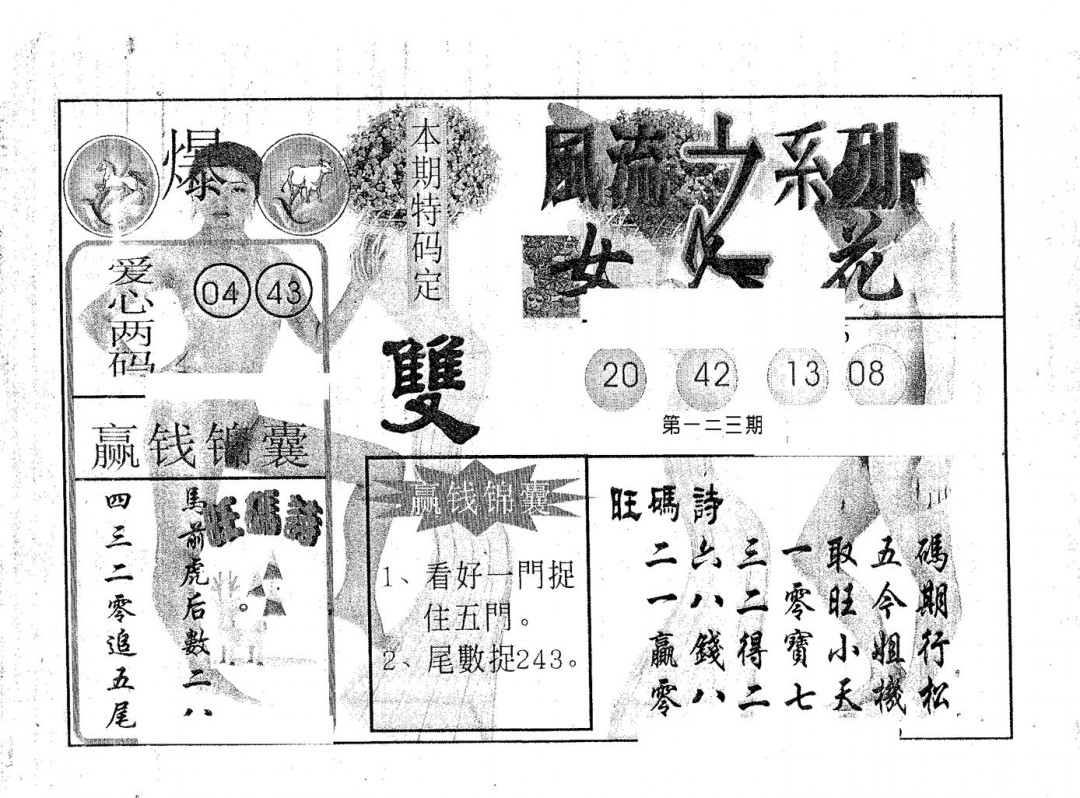 爆
爱心两码
04 43
本期特码定
雙
風流之系列
女人花
20 42 13 08
第一二三期
赢钱锦囊
旺碼詩
馬前虎后數二八
四三二零追五尾
赢钱锦囊
1、看好一門捉
住五門。
2、尾數捉243。
旺碼詩
碼期行松
五今姐機
取旺小天
一零寶七
三二得二
六八錢八
二一贏零